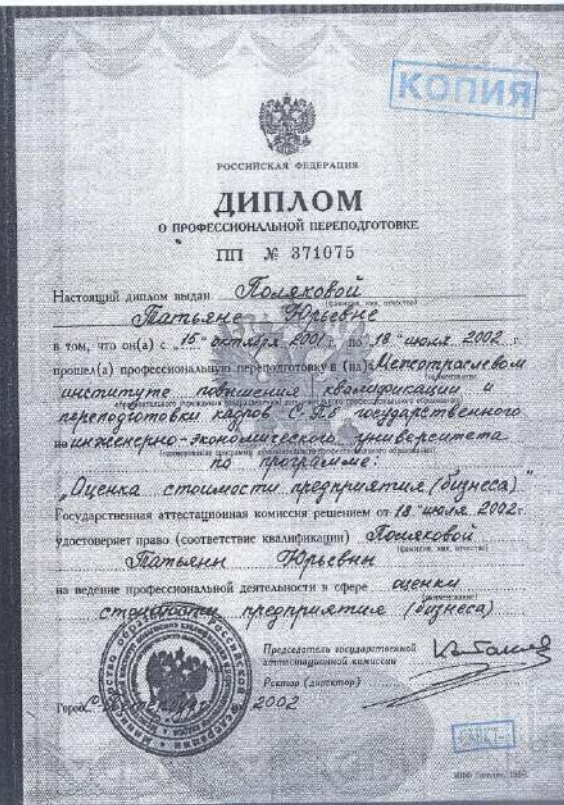 КОПИЯ
РОССИЙСКАЯ ФЕДЕРАЦИЯ
ДИПЛОМ
О ПРОФЕССИОНАЛЬНОЙ ПЕРЕПОДГОТОВКЕ
ПП № 371075
Настоящий диплом выдан Поляковой
(фамилия, имя, отчество)
Татьяне Юрьевне
в том, что он(а) с „15" октября 2001 г. по „18" июля 2002 г.
прошел(а) профессиональную переподготовку в (на) Межотраслевом
институте повышения квалификации и
переподготовки кадров С-Пб государственного
по инженерно-экономического университета
по программе:
„Оценка стоимости предприятия (бизнеса)"
Государственная аттестационная комиссия решением от „18" июля 2002 г.
удостоверяет право (соответствие квалификации) Поляковой
(фамилия, имя, отчество)
Татьяны Юрьевны
на ведение профессиональной деятельности в сфере оценки
стоимости предприятия (бизнеса)
Председатель государственной
аттестационной комиссии
Ректор (директор)
Город 2002